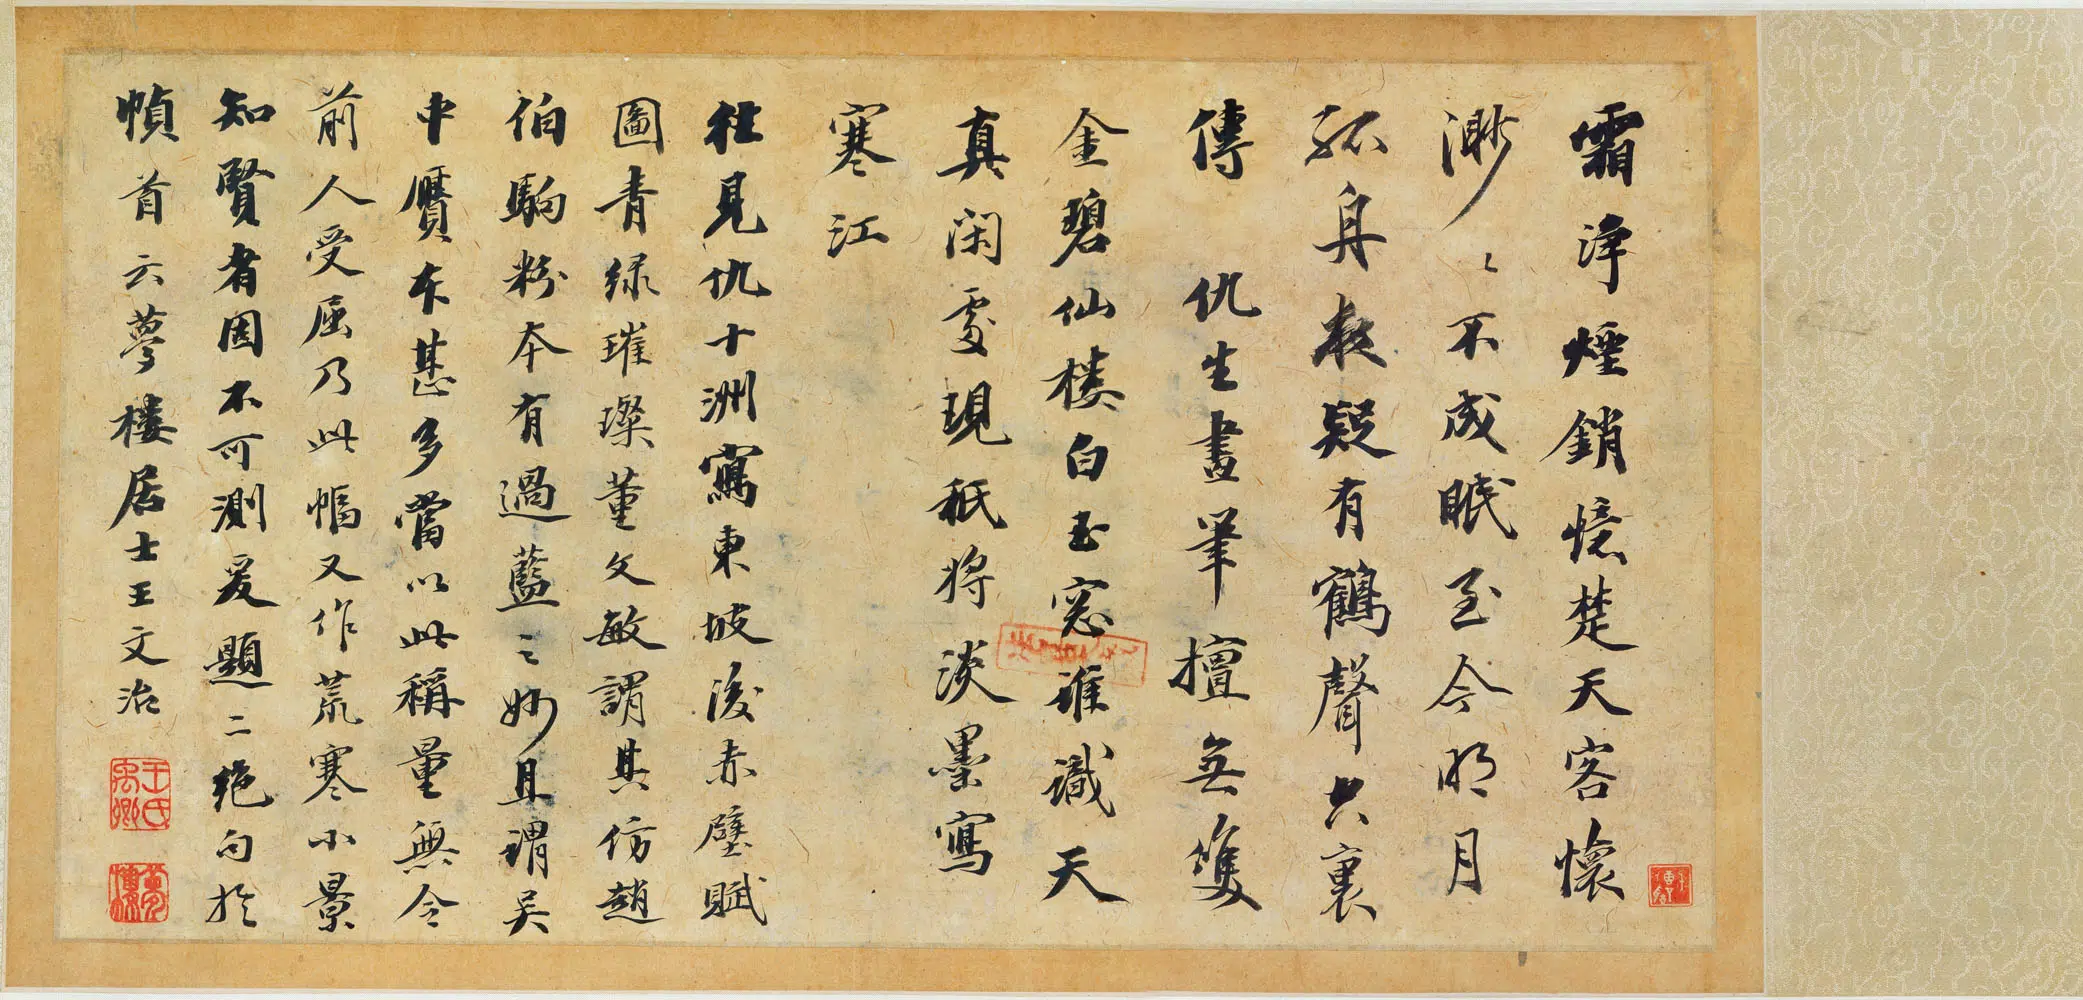 霜淨煙銷憶楚天客懷
渺々不成眠至今明月
孤舟夜疑有鶴聲空裏
傳 仇生畫筆擅無雙
金碧仙樓白玉窓誰識天
真閑處現秖將淡墨寫
寒江
往見仇十洲寫東坡後赤壁賦
圖青緑璀璨董文敏謂其仿趙
伯駒粉本有過藍之妙且謂吳
中贋本甚多當以此稱量無令
前人受屈乃此幅又作荒寒小景
知賢者固不可測爰題二絶句於
幀首云夢樓居士王文治
王氏禹卿
夢樓